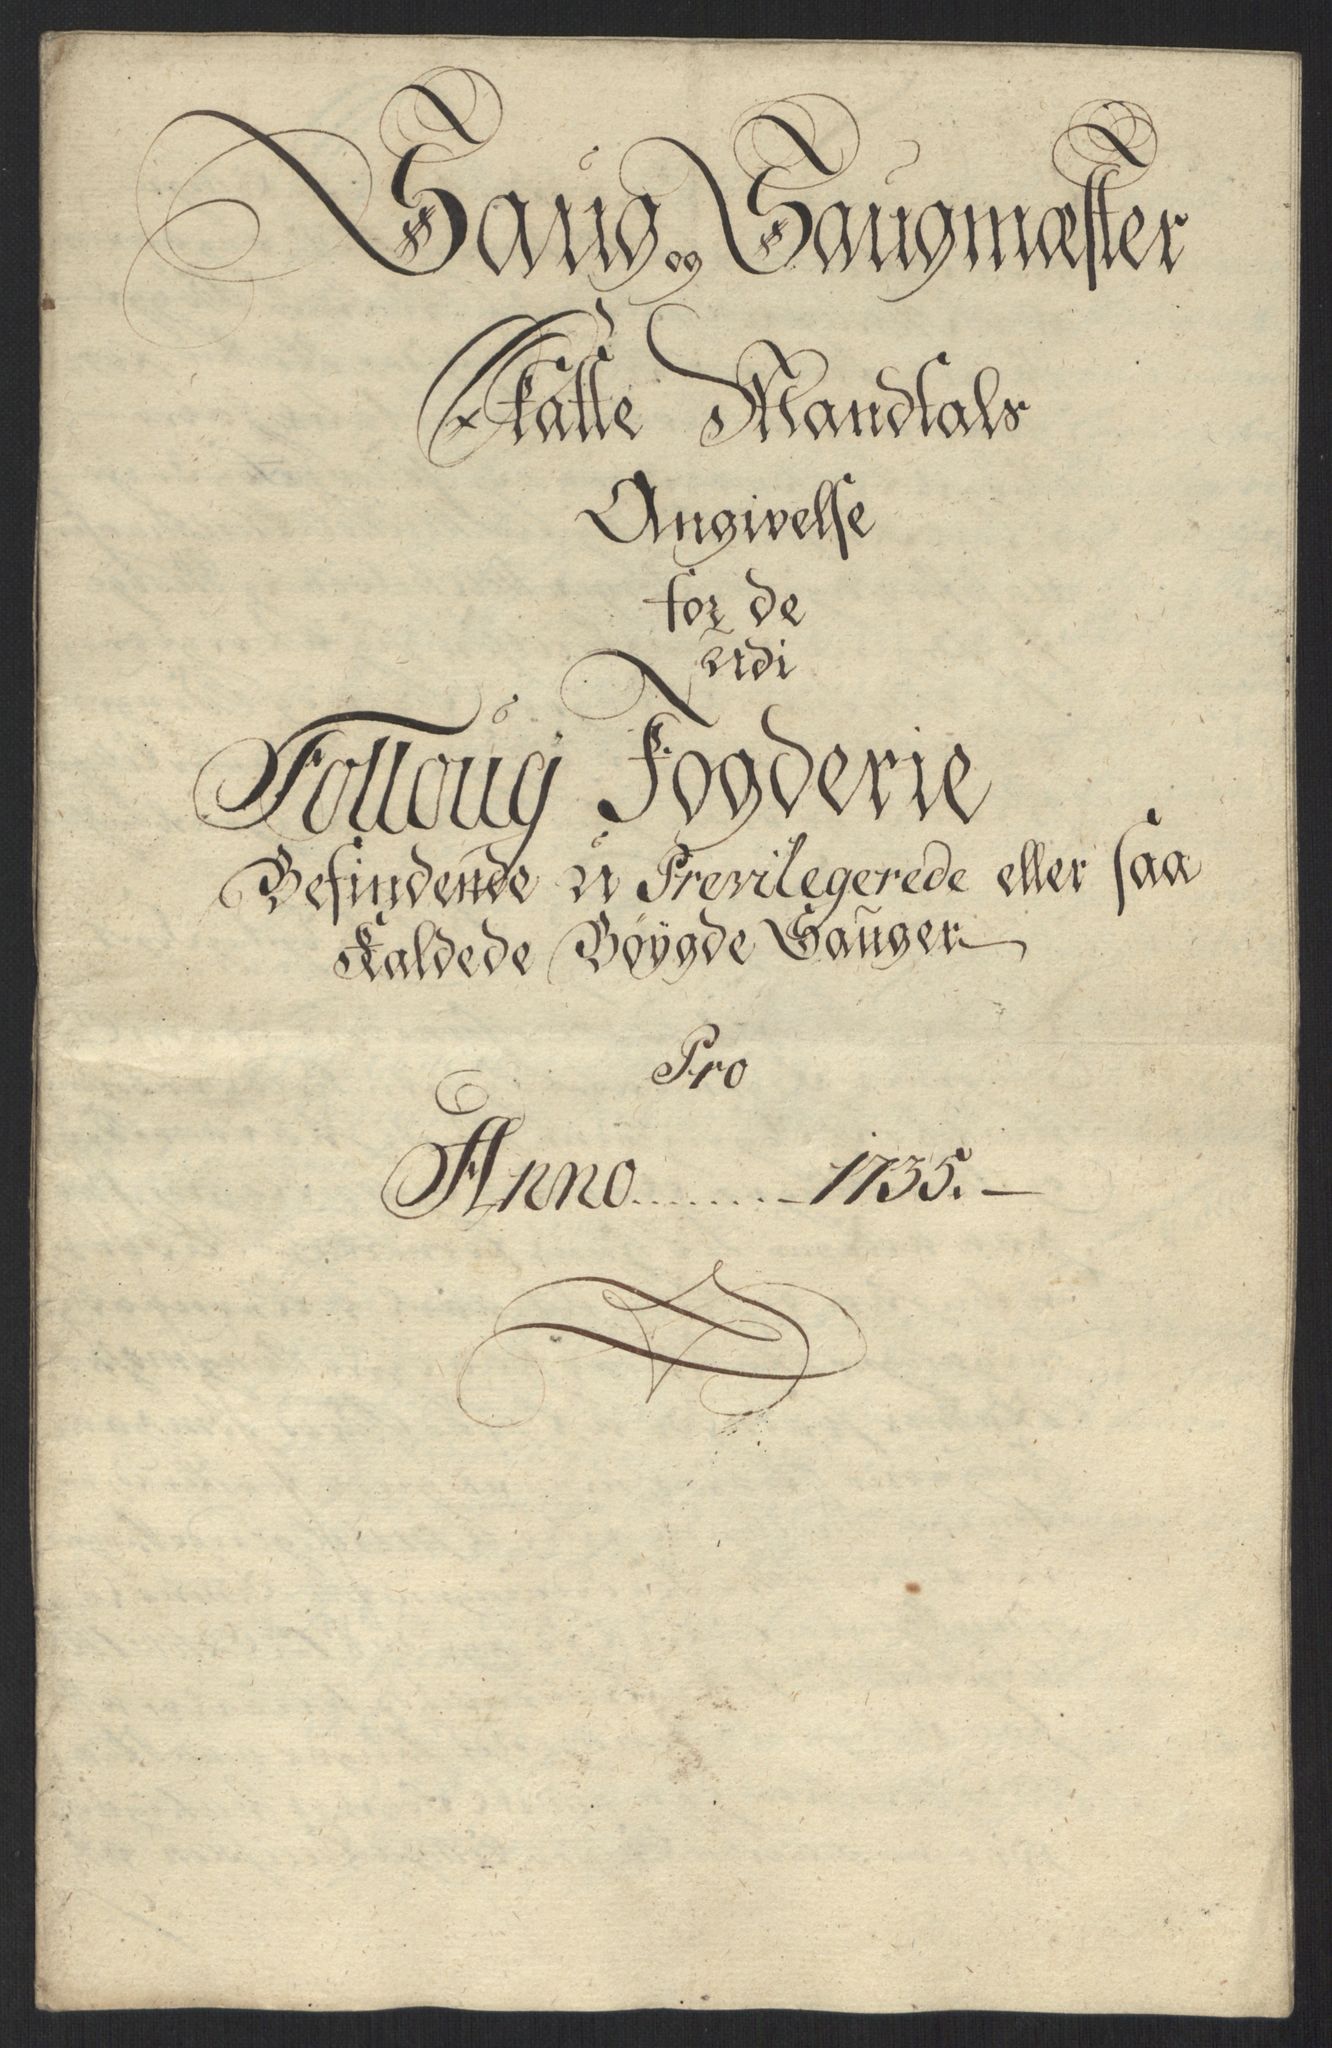 Saug og Saugmæster
Skatte Mandtals
Angivelse
for de
udi
Folloug Fogderie
Befindende u Previlegerede eller saa
Kaldede Bøygde Sauger
Pro
Anno 1735.